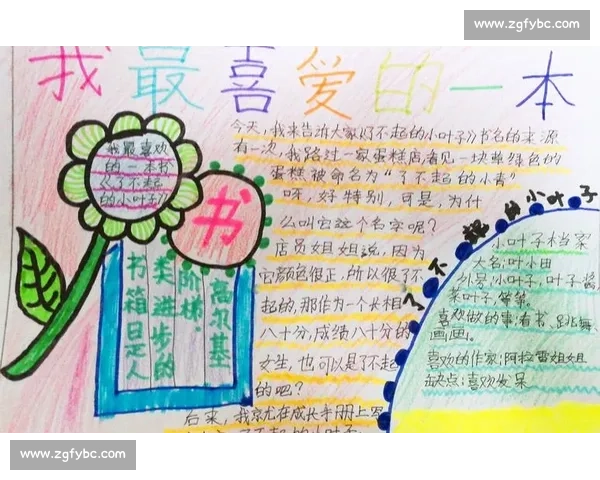 www.zgfybc.com
我最喜爱的一本
书
我最喜欢
的一本书
《了不起
的小叶子》
书箱日是人
类进步的
阶梯
高尔基
今天,我来告诉大家《了不起的小叶子》书名的来源
有一次,我路过一家蛋糕店,看见一块草绿色的
蛋糕被命名为“了不起的小青”
呀,好特别,可是,为什
么叫它这个名字呢?
店员姐姐说,因为
它颜色很正,所以很了不
起的,那作为一个长相
八十分,成绩八十分的
女生,也可以是了不起
的吧?
后来,我就在成长手册上写
了不起的小叶子
了不起的小叶子
小叶子档案
大名:叶小田
外号:小叶子,叶子酱
菜叶子,等等。
喜欢做的事:看书、跳舞
画画。
喜欢的作家:阿拉雷姐姐
缺点:喜欢发呆
www.zgfybc.com
www.zgfybc.com